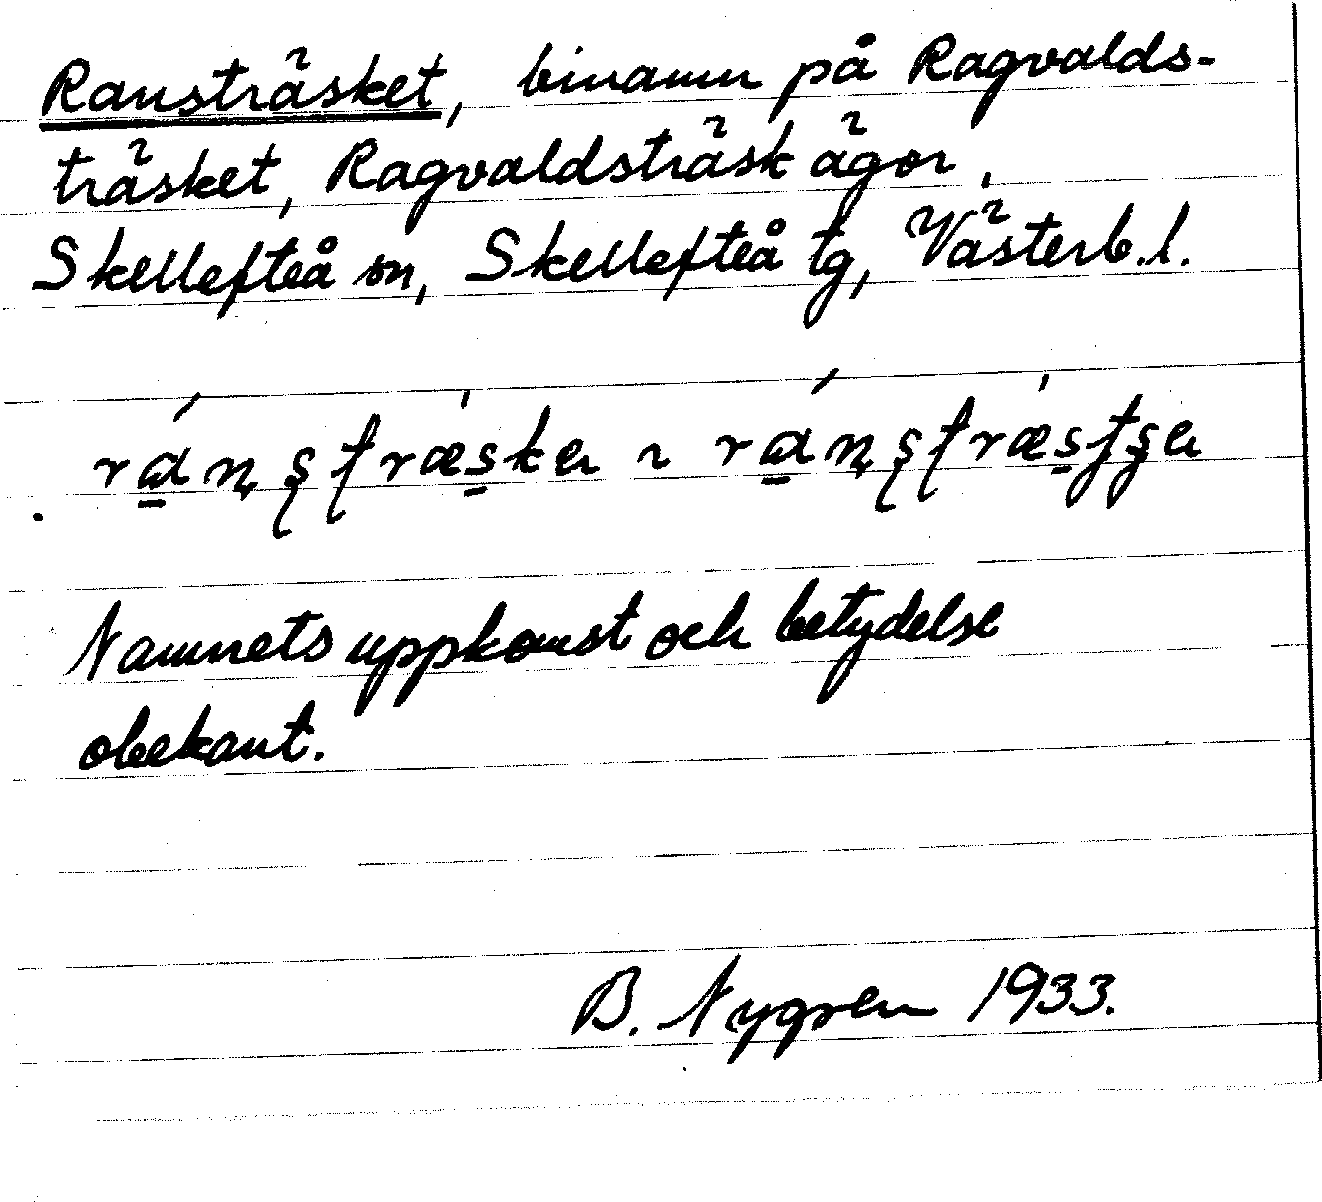 Ransträsket, binamn på Ragvalds-
träsket, Ragvaldsträsk ägor,
Skellefteå sn, Skellefteå tg, Västerb.l.
Namnets uppkomst och betydelse
obekant.
B. Nygren 1933.